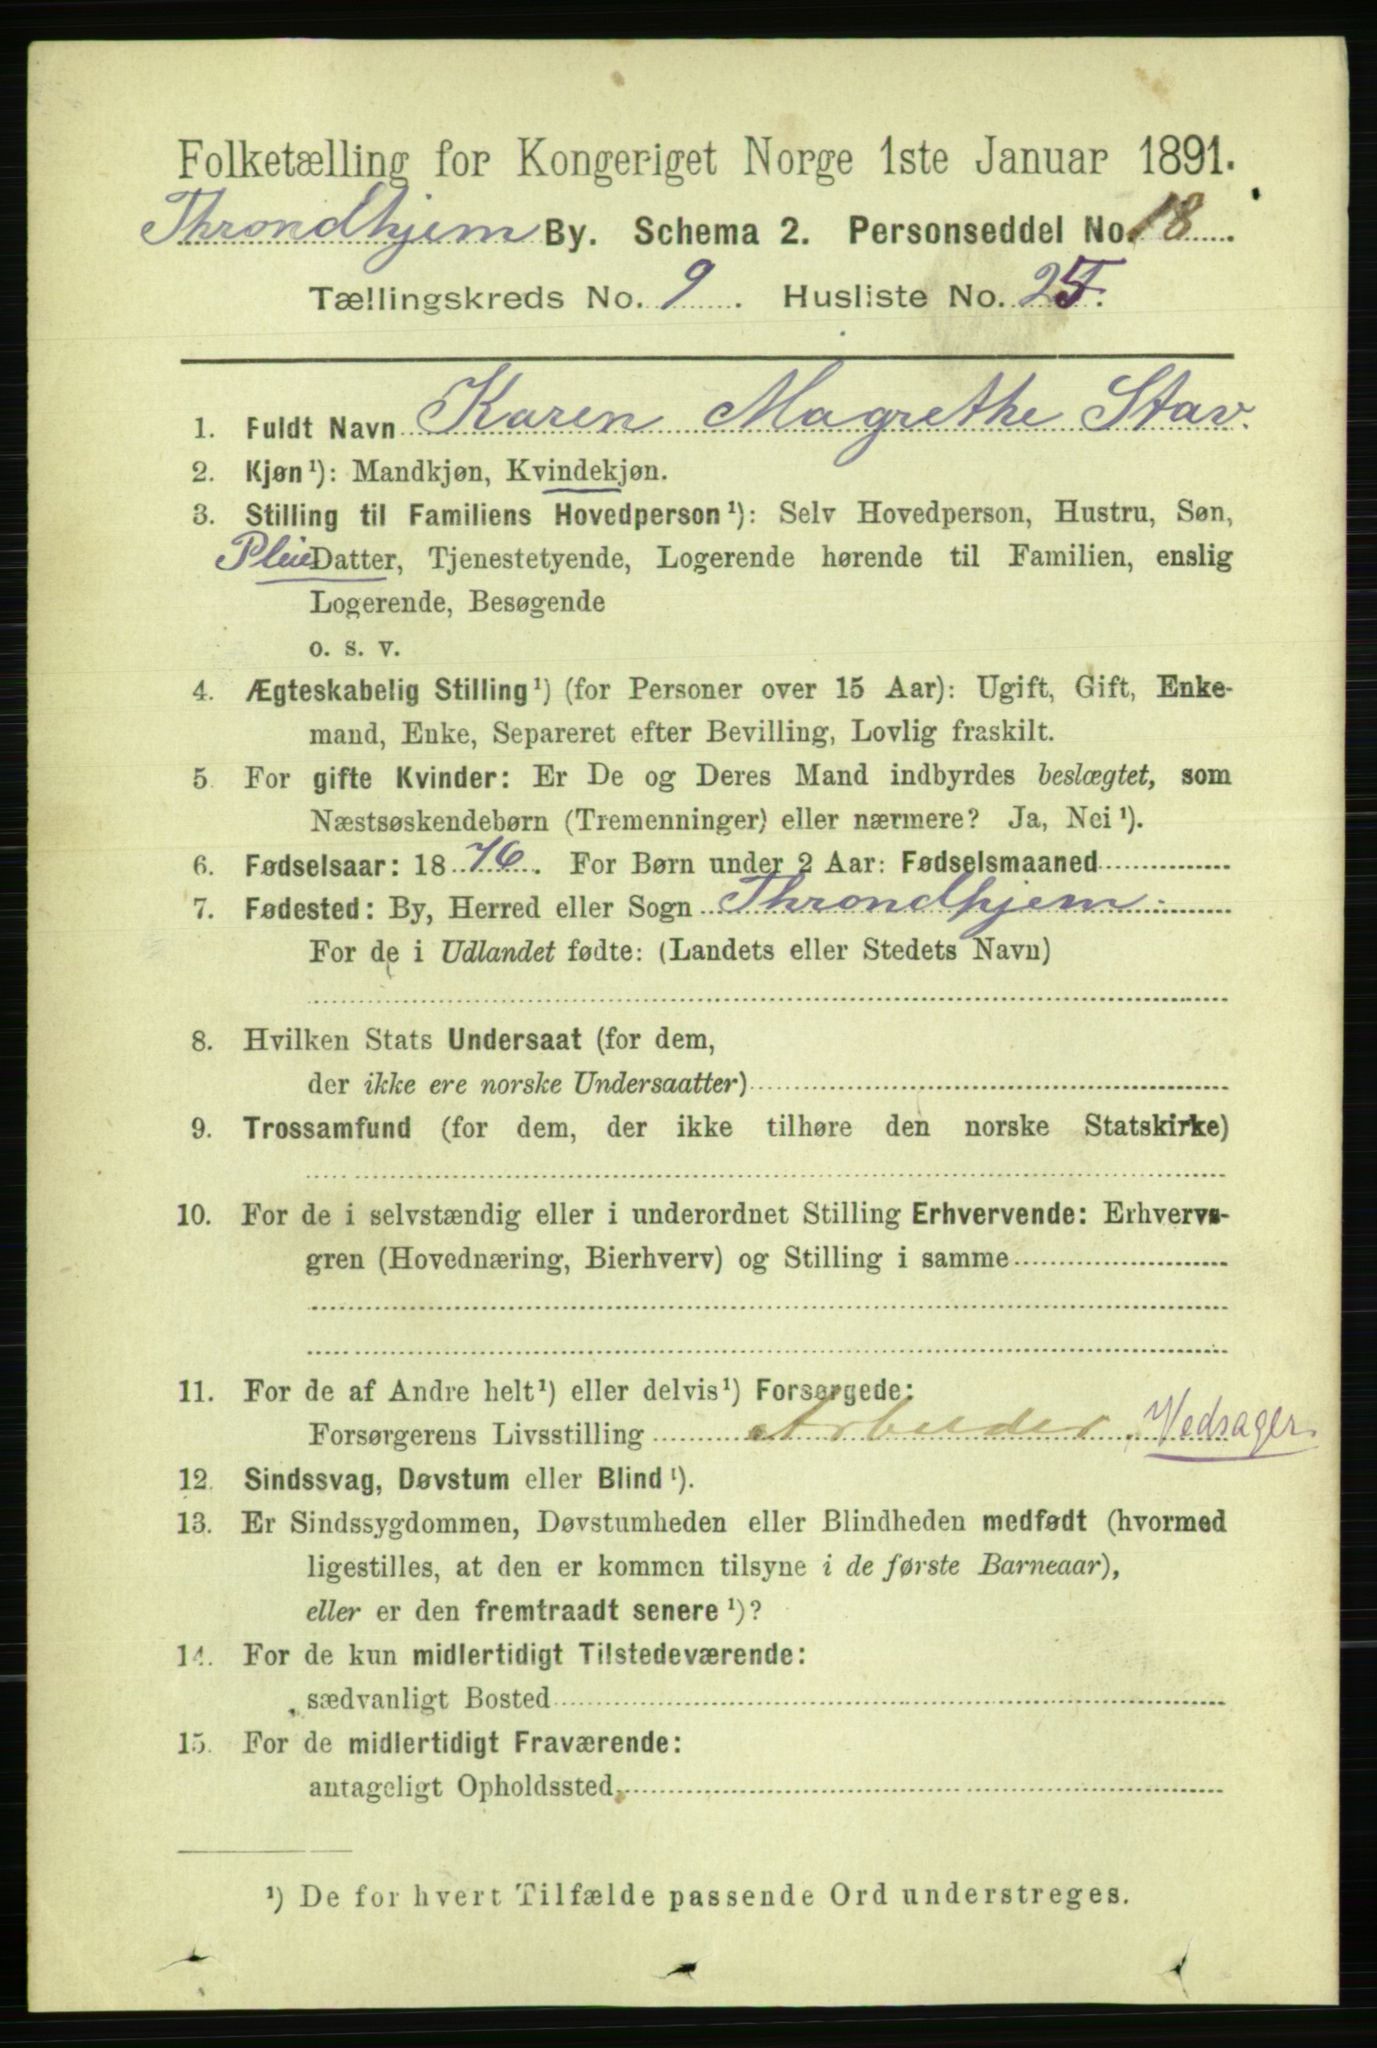 Folketælling for Kongeriget Norge 1ste Januar 1891.
Throndhjem By. Schema 2. Personseddel No. 18.
Tællingskreds No. 9. Husliste No. 25.
1. Fuldt Navn Karen Magrethe Stav.
2. Kjøn¹): Mandkjøn, Kvindekjøn.
3. Stilling til Familiens Hovedperson¹): Selv Hovedperson, Hustru, Søn,
Pleie Datter, Tjenestetyende, Logerende hørende til Familien, enslig
Logerende, Besøgende
o. s. v.
4. Ægteskabelig Stilling¹) (for Personer over 15 Aar): Ugift, Gift, Enke-
mand, Enke, Separeret efter Bevilling, Lovlig fraskilt.
5. For gifte Kvinder: Er De og Deres Mand indbyrdes beslægtet, som
Næstsøskendebørn (Tremenninger) eller nærmere? Ja, Nei¹).
6. Fødselsaar: 1876. For Børn under 2 Aar: Fødselsmaaned
7. Fødested: By, Herred eller Sogn Throndhjem.
For de i Udlandet fødte: (Landets eller Stedets Navn)
8. Hvilken Stats Undersaat (for dem,
der ikke ere norske Undersaatter)
9. Trossamfund (for dem, der ikke tilhøre den norske Statskirke)
10. For de i selvstændig eller i underordnet Stilling Erhvervende: Erhvervs-
gren (Hovednæring, Bierhverv) og Stilling i samme
11. For de af Andre helt¹) eller delvis¹) Forsørgede:
Forsørgerens Livsstilling Arbeider. Vedsager.
12. Sindssvag, Døvstum eller Blind¹).
13. Er Sindssygdommen, Døvstumheden eller Blindheden medfødt (hvormed
ligestilles, at den er kommen tilsyne i de første Barneaar),
eller er den fremtraadt senere¹)?
14. For de kun midlertidigt Tilstedeværende:
sædvanligt Bosted
15. For de midlertidigt Fraværende:
antageligt Opholdssted
¹) De for hvert Tilfælde passende Ord understreges.